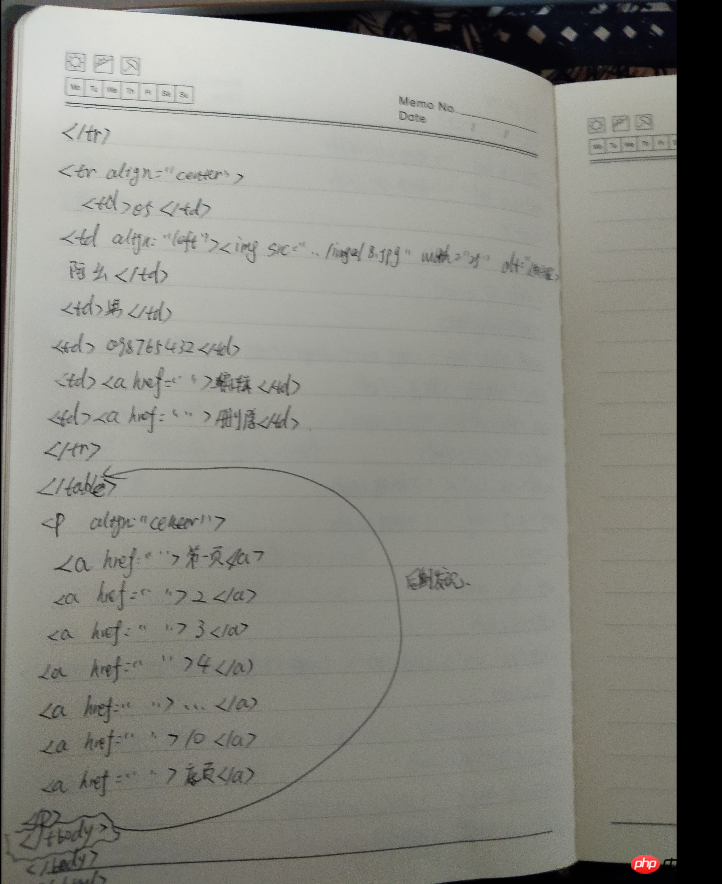 Mo Tu We Th Fr Sa Su
Memo No.
Date / /
</tr>
<tr align="center">
<td>05</td>
<td align="left"><img src="../image/8.jpg" width="25" alt="
阿么</td>
<td>男</td>
<td>098765432</td>
<td><a href=" ">编辑</td>
<td><a href=" ">删除</td>
</tr>
</table>
<p align="center">
<a href=" ">第一页</a>
<a href=" ">2</a>
<a href=" ">3</a>
<a href=" ">4</a>
<a href=" ">...</a>
<a href=" ">10</a>
<a href=" ">底页</a>
</tbody>
</body>
php